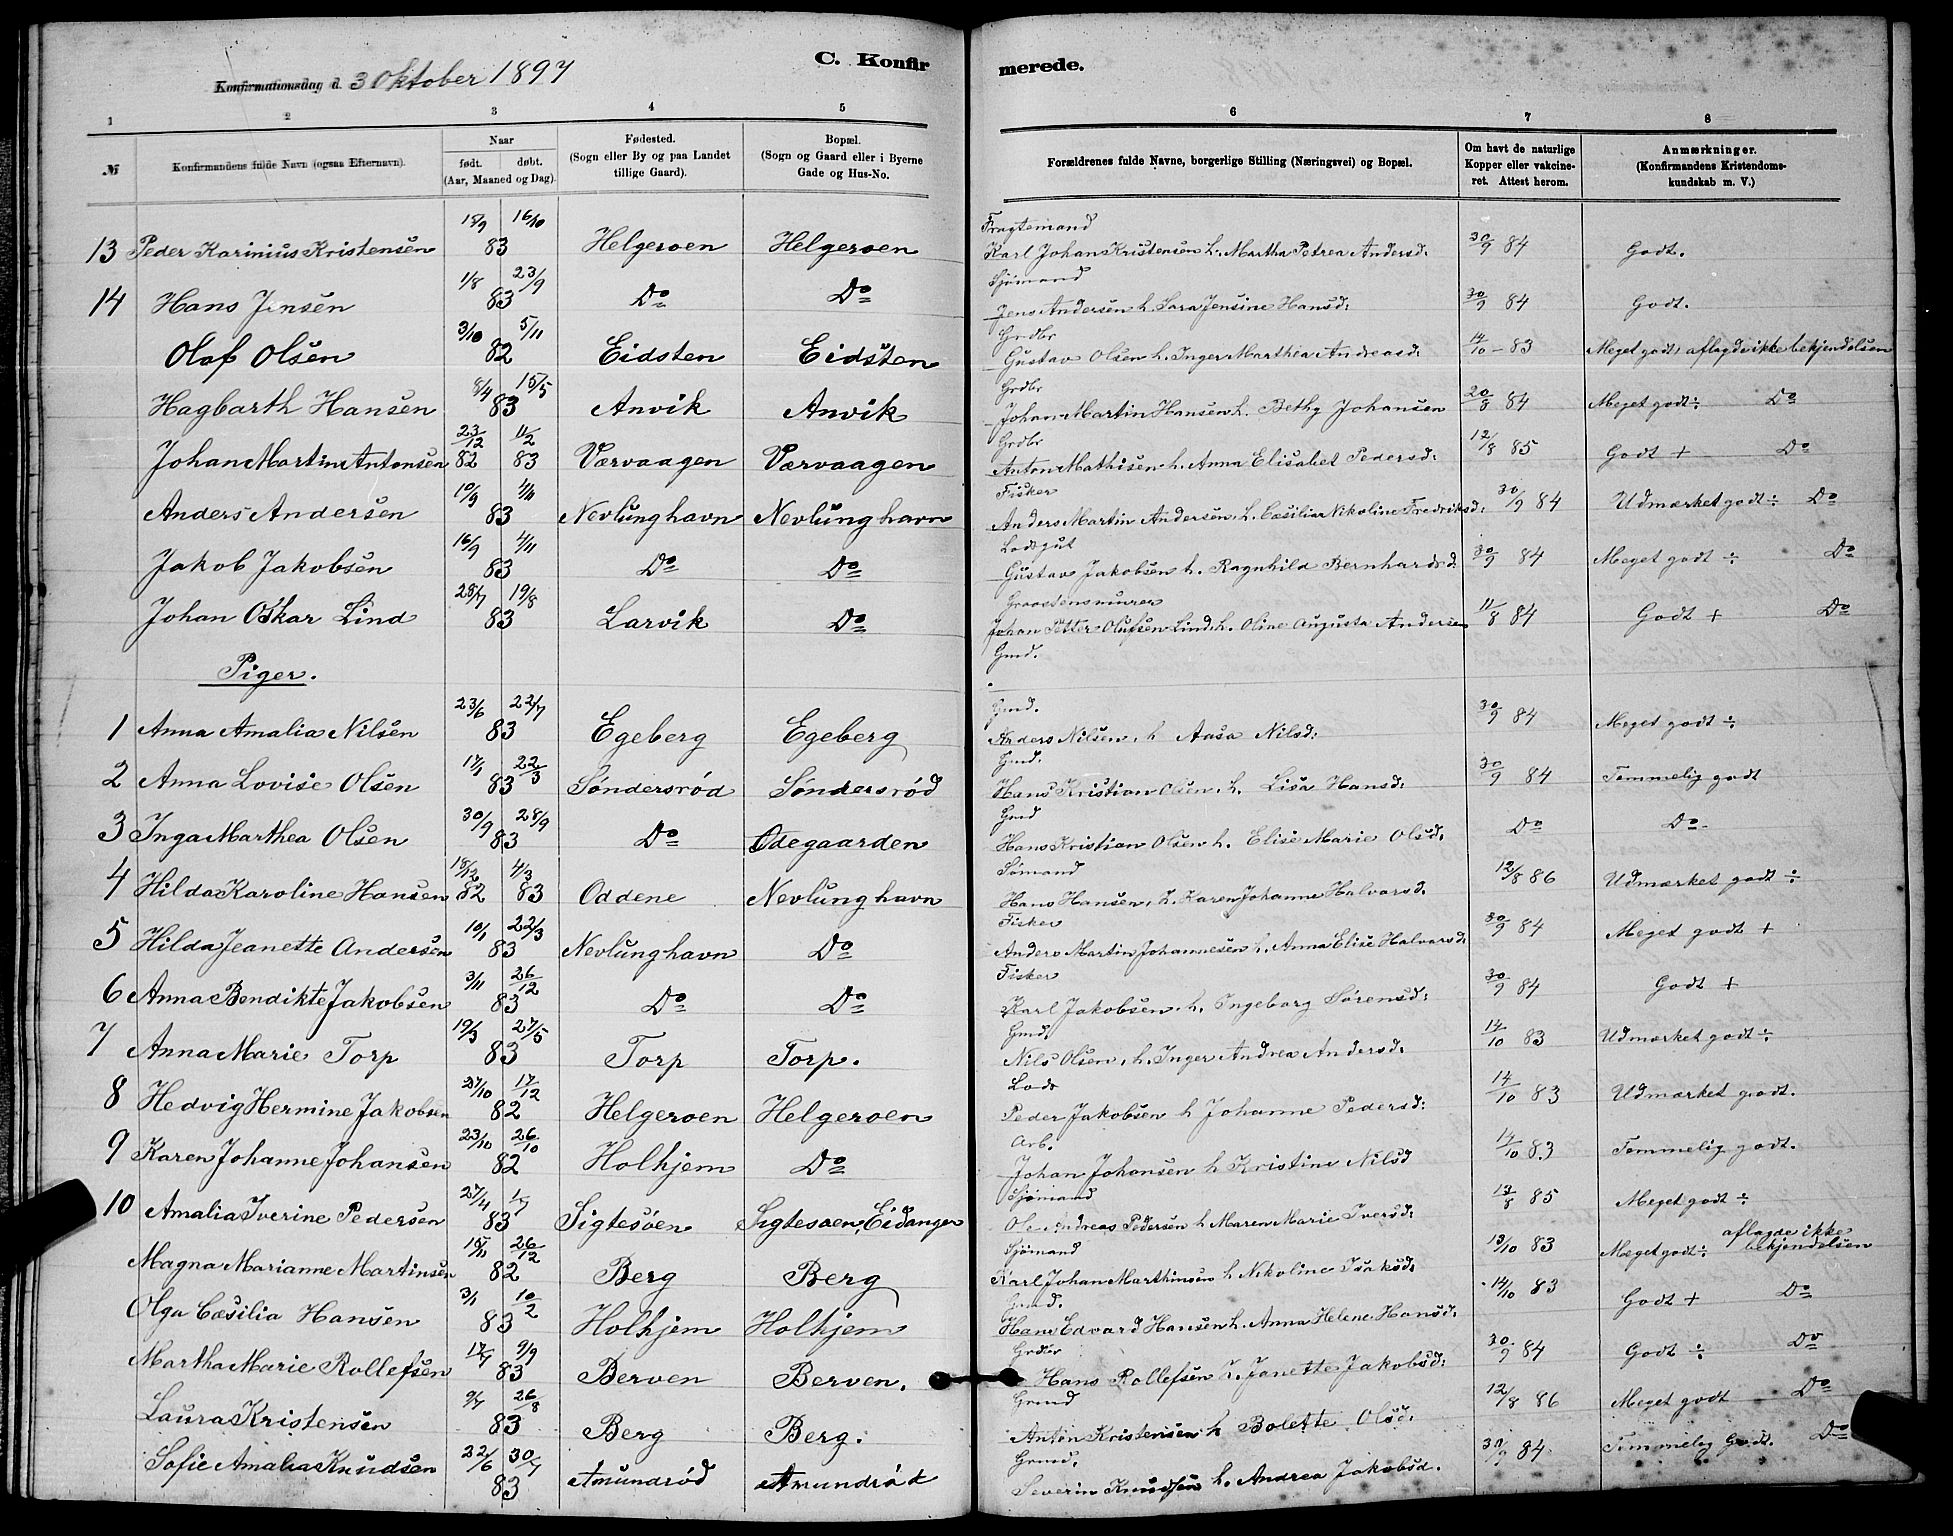 C. Konfirmerede.
Konfirmationsdag d. 3 Oktober 1897
1 2 3 4 5 6 7 8
№ Konfirmandens fulde Navn (ogsaa Efternavn). Naar født. døbt. (Aar, Maaned og Dag). Fødested. (Sogn eller By og paa Landet tillige Gaard). Bopæl. (Sogn og Gaard eller i Byerne Gade og Hus-No. Forældrenes fulde Navne, borgerlige Stilling (Næringsvei) og Bopæl. Om havt de naturlige Kopper eller vakcineret. Attest herom. Anmærkninger. (Konfirmandens Kristendomskundskab m. V.)
13 Peder Karinius Kristensen 18/9 16/10 83 Helgeroen Helgeroen Fragtemand Karl Johan Kristensen h. Martha Petrea Andersd. 30/9 84 Godt.
14 Hans Jensen 1/8 23/9 83 Do Do Sjømand Jens Andersen h. Sara Jensine Hansd: 30/9 84 Godt.
Olaf Olsen 3/10 5/11 82 Eidsten Eidsten Grdbr Gustav Olsen h. Inger Marthea Andreasd: 14/10 - 83 Meget godt, aflagde ikke bekjendelsen
Hagbarth Hansen 8/4 15/5 83 Anvik Anvik Grdbr Johan Martin Hansen h. Bethy Johansen 20/8 84 Meget godt ÷ Do
Johan Martin Antonsen 23/12 82 11/2 83 Værvaagen Værvaagen Grdbr Anton Mathisen h. Anna Elisabet Pedersd: 12/8 85 Godt + Do
Anders Andersen 10/9 4/11 83 Nevlunghavn Nevlunghavn Fisker Anders Martin Andersen, h. Cæsilia Nikoline Fredriksd: 30/9 84 Udmærket godt ÷ Do
Jakob Jakobsen 16/9 4/11 83 Do Do Lodsgut Gustav Jakobsen h. Ragnhild Bernhardsd 30/9 84 Meget godt ÷ Do
Johan Oskar Lind 28/7 19/8 83 Larvik Do Graastensmurer Johan Petter Olufsen Lind h. Oline Augusta Andersen 11/8 84 Godt + Do
Gmd.
Piger.
1 Anna Amalia Nilsen 23/6 22/7 83 Egeberg Egeberg Gmd. Anders Nilsen, h Aasa Nilsd: 30/9 84 Meget godt ÷
2 Anna Lovise Olsen 17/1 22/3 83 Søndersrød Søndersrød Gmd. Hans Kristian Olsen, h. Lisa Hansd: 30/9 84 Temmelig godt
3 Inga Marthea Olsen 30/9 28/9 83 Do Ødegaarden Gmd Hans Kristian Olsen h. Elise Marie Olsd: Do Do
4 Hilda Karoline Hansen 18/12 82 4/3 83 Oddene Nevlunghavn Sømand Hans Hansen, h. Karen Johanne Halvorsd: 12/8 86 Udmærket godt ÷
5 Hilda Jeanette Andersen 10/1 22/3 83 Nevlunghavn Do Fisker Anders Martin Johannesen h. Anna Elise Halvorsd: 30/9 84 Meget godt +
6 Anna Bendikte Jakobsen 3/11 26/12 83 Do Do Fisker Karl Jakobsen, h. Ingeborg Sørensd: 30/9 84 Godt +
7 Anna Marie Torp 19/3 27/5 83 Torp Torp. Gmd. Nils Olsen, h. Inger Andrea Andersd: 14/10 83 Udmærket godt ÷
8 Hedvig Hermine Jakobsen 27/10 17/12 82 Helgeroen Helgeroen Lods Peder Jakobsen h Johanne Pedersd: 14/10 83 Udmærket godt.
9 Karen Johanne Johansen 23/10 26/10 82 Holhjem Do Arb. Johan Johansen h Kristine Nilsd 14/10 83 Temmelig godt.
10 Amalia Iverine Pedersen 27/4 1/7 83 Sigtesøen Sigtesøen, Eidanger Sjømand Ole Andreas Pedersen h Maren Marie Iversd: 13/8 85 Meget godt ÷
Magna Marianne Martinsen 15/11 26/12 82 Berg Berg Sjømand Karl Johan Marthinsen h Nikoline Isaksd: 13/10 83 Meget godt ÷ aflagde ikke bekjendelsen
Olga Cæsilia Hansen 3/1 10/2 83 Holhjem Holhjem Gmd. Hans Edvard Hansen h. Anna Helene Hansd: 14/10 83 Godt + Do
Martha Marie Rollefsen 17/7 9/9 83 Berven Berven. Grdbr Hans Rollefsen h. Janette Jakobsd: 30/9 84 Godt ÷ Do
Laura Kristensen 9/7 26/8 83 Berg Berg. Grmd Anton Kristensen h Bolette Olsd: 12/8 86 Meget godt Do
Sofie Amalia Knudsen 22/6 30/7 83 Amundrød Amundrød Grmd. Severin Knudsen h. Andrea Jakobsd. 30/9 84 Temmelig Godt. Do